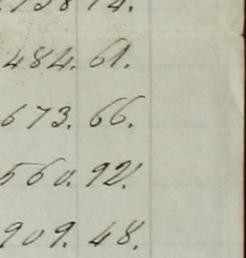 738 14.
484. 61.
673. 66.
560. 92.
909. 48.